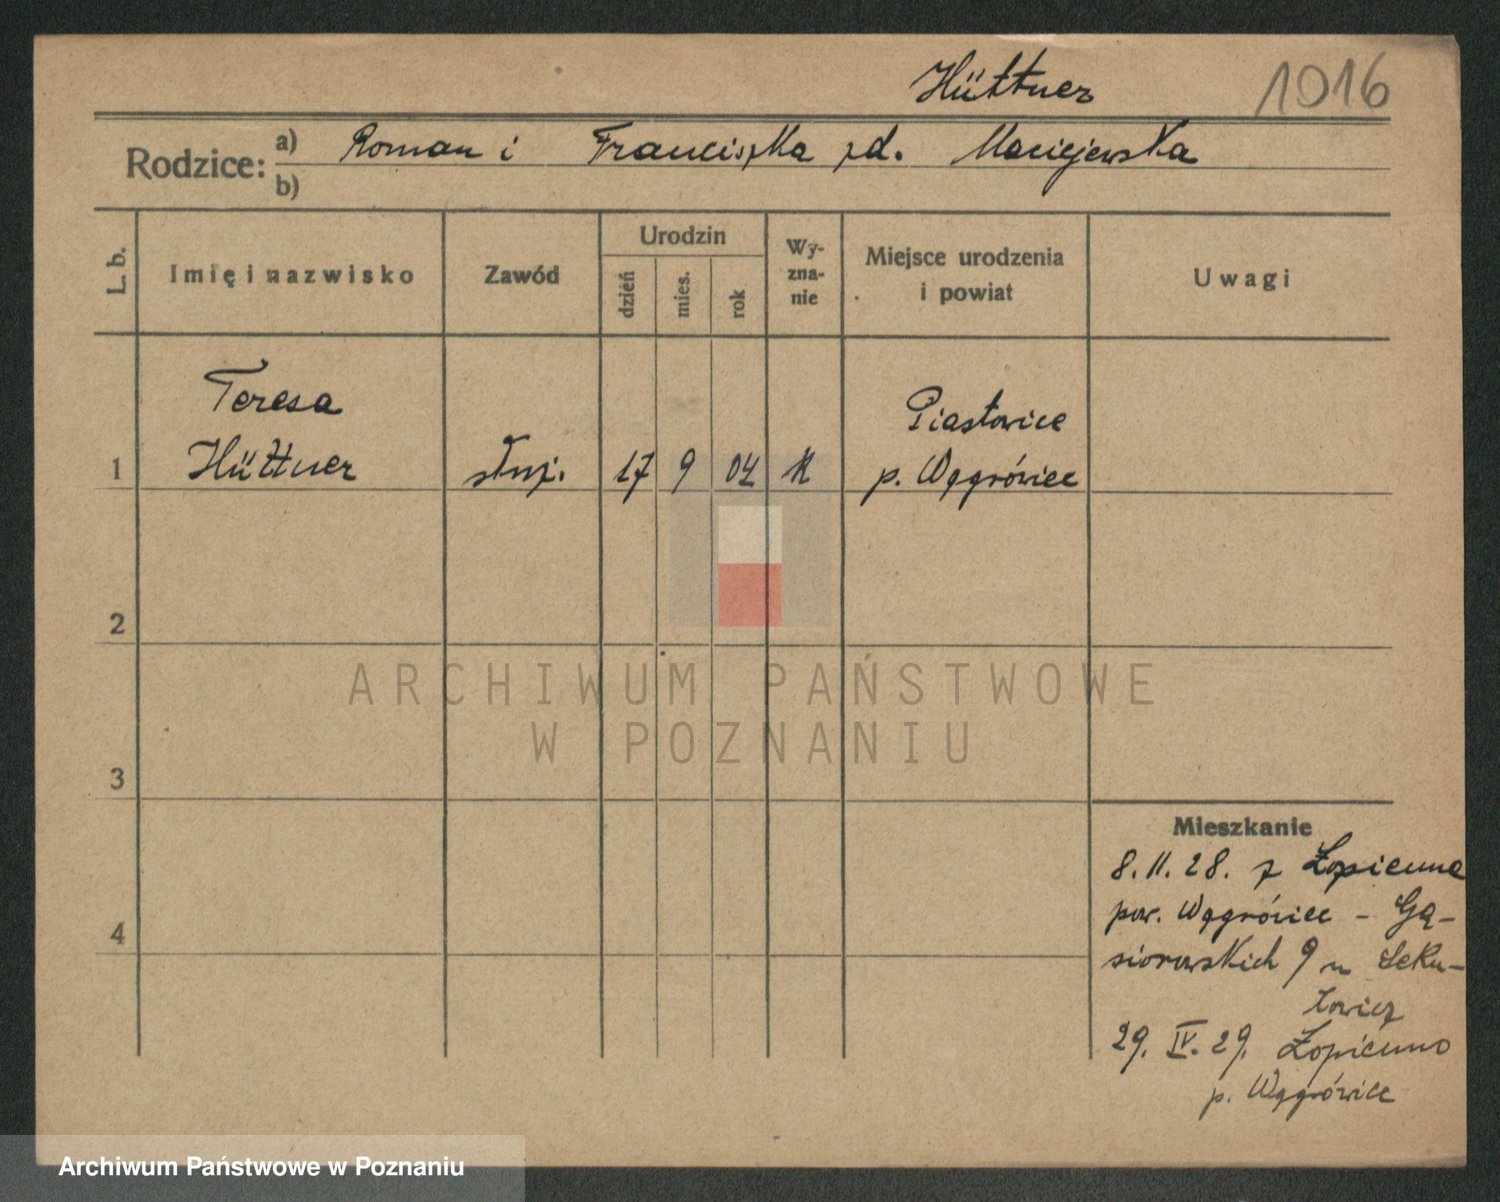 Hüttner
1016
Rodzice: a) Roman i Franciszka zd. Maciejewska
b)
L. b.
Imię i nazwisko
Zawód
Urodzin
dzień
mies.
rok
Wy-
zna-
nie
Miejsce urodzenia
i powiat
Uwagi
Teresa
Piastowice
1 Hüttner służ. 17 9 04 K p. Wągrówiec
2
ARCHIWUM PAŃSTWOWE
W POZNANIU
3
Mieszkanie
8. II. 28. z Łopienna
pow. Wągrówiec - Gą-
4
siorowskich 9 u Seku-
łowicz
29. IV. 29. Łopienno
p. Wągrówiec
Archiwum Państwowe w Poznaniu